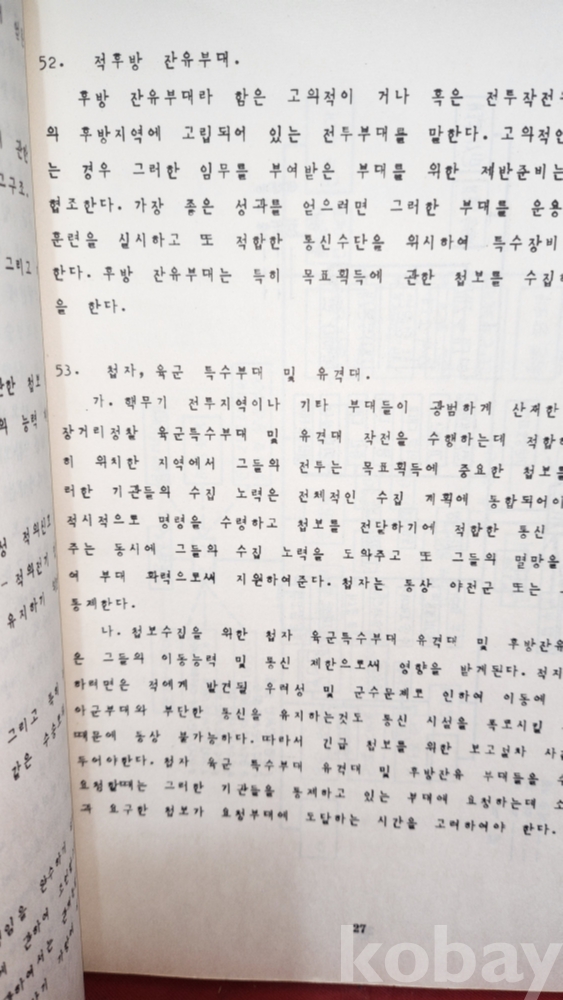 52. 적후방 잔유부대.
후방 잔유부대라 함은 고의적이 거나 혹은 전투작전
와 후방지역에 고립되어 있는 전투부대를 말한다. 고의적인
는 경우 그러한 임무를 부여받은 부대를 위한 제반준비는
협조한다. 가장 좋은 성과를 얻으려면 그러한 부대를 운용
훈련을 실시하고 또 적합한 통신수단을 위시하여 특수장비
한다. 후방 잔유부대는 특히 목표획득에 관한 첩보를 수집
을 한다.
53. 첩자, 육군 특수부대 및 유격대.
가. 핵무기 전투지역이나 기타 부대들이 광범하게 산재한
장거리정찰 육군특수부대 및 유격대 작전을 수행하는데 적합
히 위치한 지역에서 그들의 전투는 목표획득에 중요한 첩보를
러한 기관들의 수집 노력은 전체적인 수집 계획에 통합되어야
적시적으로 명령을 수령하고 첩보를 전달하기에 적합한 통신
주는 동시에 그들의 수집 노력을 도와주고 또 그들의 열망을
여 부대 화력으로써 지원하여준다. 첩자는 통상 야전군 또는
통제한다.
나. 첩보수집을 위한 첩자 육군특수부대 유격대 및 후방잔유
은 그들의 이동능력 및 통신 제한으로써 영향을 받게된다. 적지
하려면은 적에게 발견될 우려성 및 군수문제로 인하여 이동에
아군부대와 부단한 통신을 유지하는것도 통신 시설을 폭로시킬
때문에 통상 불가능하다. 따라서 긴급 첩보를 위한 보고절차
두어야한다. 첩자 육군 특수부대 유격대 및 후방잔유 부대들을
요청할때는 그러한 기관들을 통제하고 있는 부대에 요청하는데
과 요구한 첩보가 요청부대에 도달하는 시간을 고려하여야 한다.
27
kobay